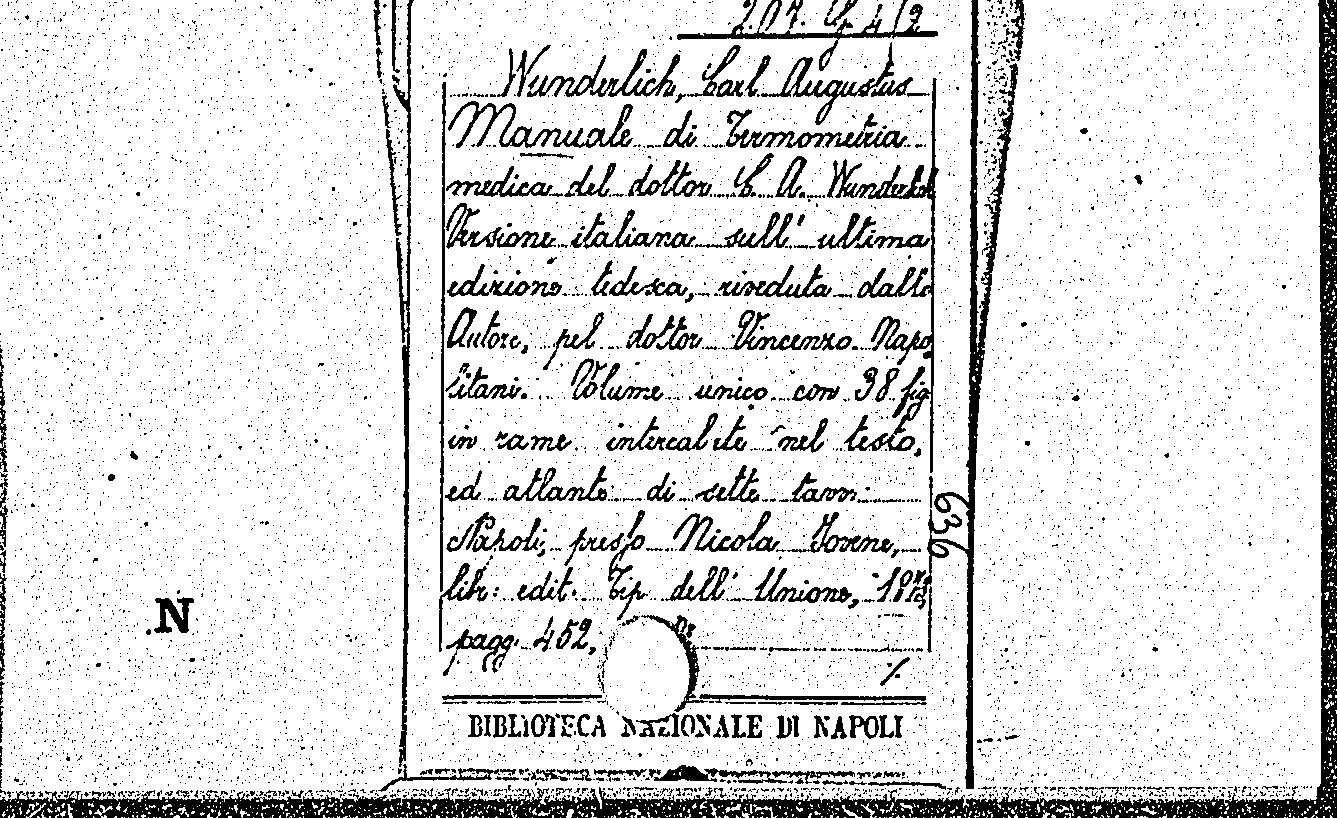 Wunderlich, Carl Augustus
Manuale di Termometria
medica del dottor C. A. Wunderlich
Versione italiana sull' ultima
edizione tedesca, riveduta dallo
Autore, pel dottor Vincenzo Napo
litani. Volume unico con 38 fig
in rame intercalate nel testo,
ed atlante di sette tavv:
Napoli, presso Nicola Jovene,
libr: edit. Tip dell' Unione,
pagg. 452,
%
BIBLIOTECA NAZIONALE DI NAPOLI
636
N